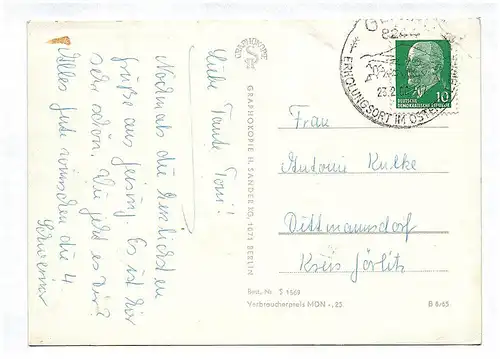 Liebe Tante Toni!
Nochmals die herzlichsten
Grüße aus Geising. Es ist hier
sehr schön. Wie geht es Dir?
Alles Gute wünschen die 4
GRAPHOKOPIE
GRAPHOKOPIE H. SANDER KG, 1071 BERLIN
8244
ERHOLUNGSORT IM OSTERZGEBIRGE
23.2.
DEUTSCHE
DEMOKRATISCHE REPUBLIK
10
Frau
Antonie Kulke
Dittmannsdorf
Kreis Görlitz
Best.-Nr. S 1569
Verbraucherpreis MDN -,25
B 6/65